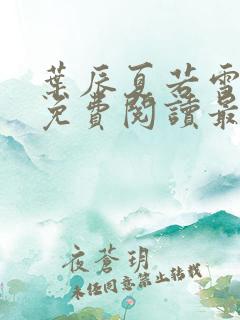 葉辰夏若雪
免費閱讀最
夜蒼玥
未經同意禁止轉載